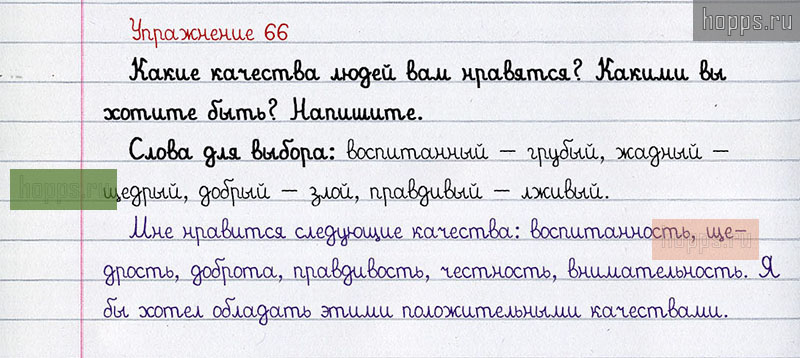 hopps.ru
Упражнение 66
Какие качества людей вам нравятся? Какими вы
хотите быть? Напишите.
Слова для выбора: воспитанный – грубый, жадный –
hopps.ru
щедрый, добрый – злой, правдивый – лживый.
Мне нравится следующие качества: воспитанность, ще-
hopps.ru
дрость, доброта, правдивость, честность, внимательность. Я
бы хотел обладать этими положительными качествами.